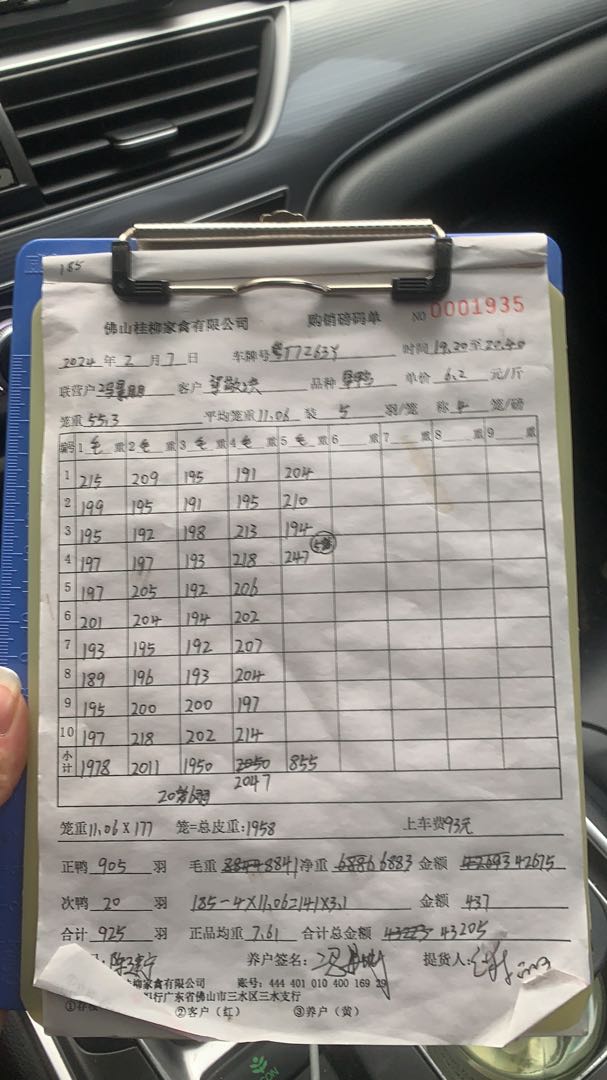 185
佛山桂柳家禽有限公司 购销磅码单 NO 0001935
2024 年 2 月 7 日 车牌号 粤T7263Y 时间 19.20至20.40
联营户 客户 品种 单价 6.2 元/斤
笼重 55.3 平均笼重 11.06 装 5 羽/笼 称 4 笼/磅
编号 1 毛 重 2 毛 重 3 毛 重 4 毛 重 5 毛 重 6 重 7 重 8 重 9 重
1 215 209 195 191 204
2 199 195 191 195 210
3 195 192 198 213 194
4 197 197 193 218 247
5 197 205 192 206
6 201 204 194 202
7 193 195 192 207
8 189 196 193 204
9 195 200 200 197
10 197 218 202 214
小计 1978 2011 1950 2050 855
2047
笼重 11.06 X 177 笼=总皮重: 1958 上车费93元
正鸭 905 羽 毛重 8844 8841 净重 6886 6883 金额 42693 42675
次鸭 20 羽 185-4X11.06=141X3.1 金额 437
合计 925 羽 正品均重 7.61 合计总金额 43223 43205
养户签名: 提货人:
柳家禽有限公司 账号: 444 401 010 400 169 29
银行广东省佛山市三水区三水支行
②客户（红） ③养户（黄）